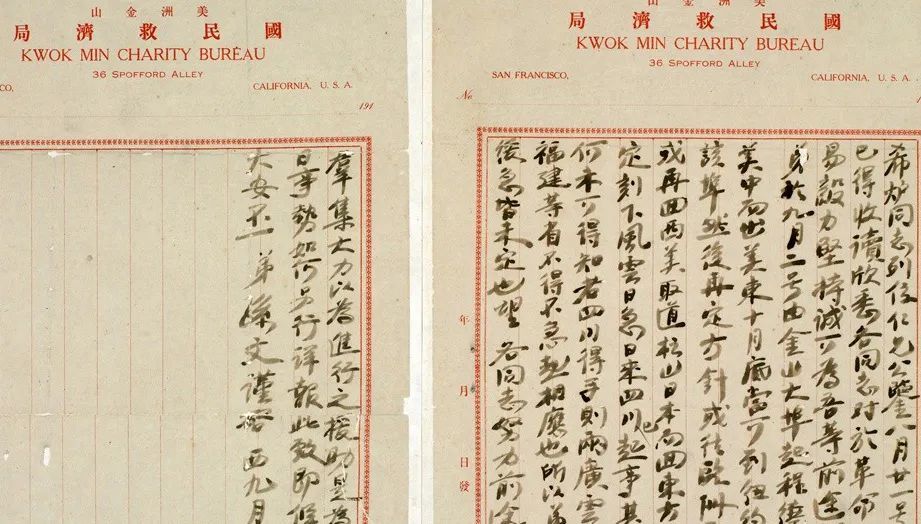 美洲金山
國民救濟局
KWOK MIN CHARITY BUREAU
36 SPOFFORD ALLEY
SAN FRANCISCO,
CALIFORNIA, U. S. A.
No
希炉同志列位仁兄公鑒八月廿一号
已得收讀欣悉各同志对於革命
易毅力堅持誠可為吾等前途
弟於九月二号由金山大埠起程經
美中而出美東十月底當可到紐約
該埠然後再定方針或往歐洲
或再回西美取道松山日本而回東方
定刻下風雲日急日來四川起事其
何未可得知若四川得手則兩廣雲
福建等省不得不急起相應也所以弟
後急皆未定也望各同志努力前途
年月日發
美洲金山
國民救濟局
KWOK MIN CHARITY BUREAU
36 SPOFFORD ALLEY
CO,
CALIFORNIA, U. S. A.
191
羣集大力以為進行之援助是為
日事勢如何另行詳報此致即候
大安不一弟孫文謹啓西九月